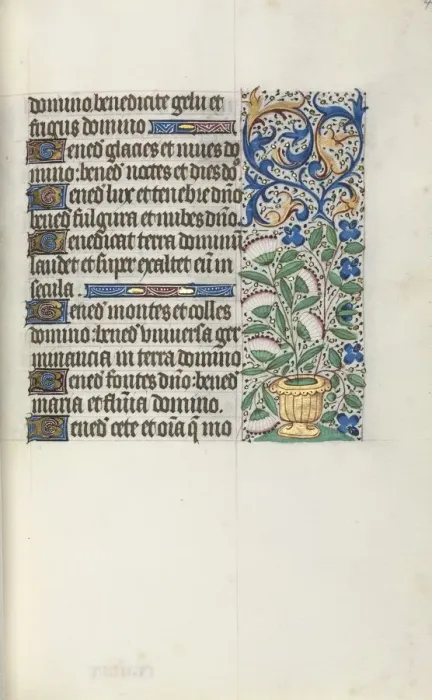 domino, benedicite gelu et
frigus domino
Bened̄ glacies et niues do
mino: bened̄ noctes et dies dn̄o
Bened̄ lux et tenebre dn̄o
bened̄ fulgura et nubes dn̄o.
Benedicat terra dominū
laudet et super exaltet eū in
secula.
Bened̄ montes et colles
domino: bened̄ vniuersa ger
minancia in terra domino.
Bened̄ fontes dn̄o: bened̄
maria et flūia domino.
Bened̄ cete et oīa q̄ mo